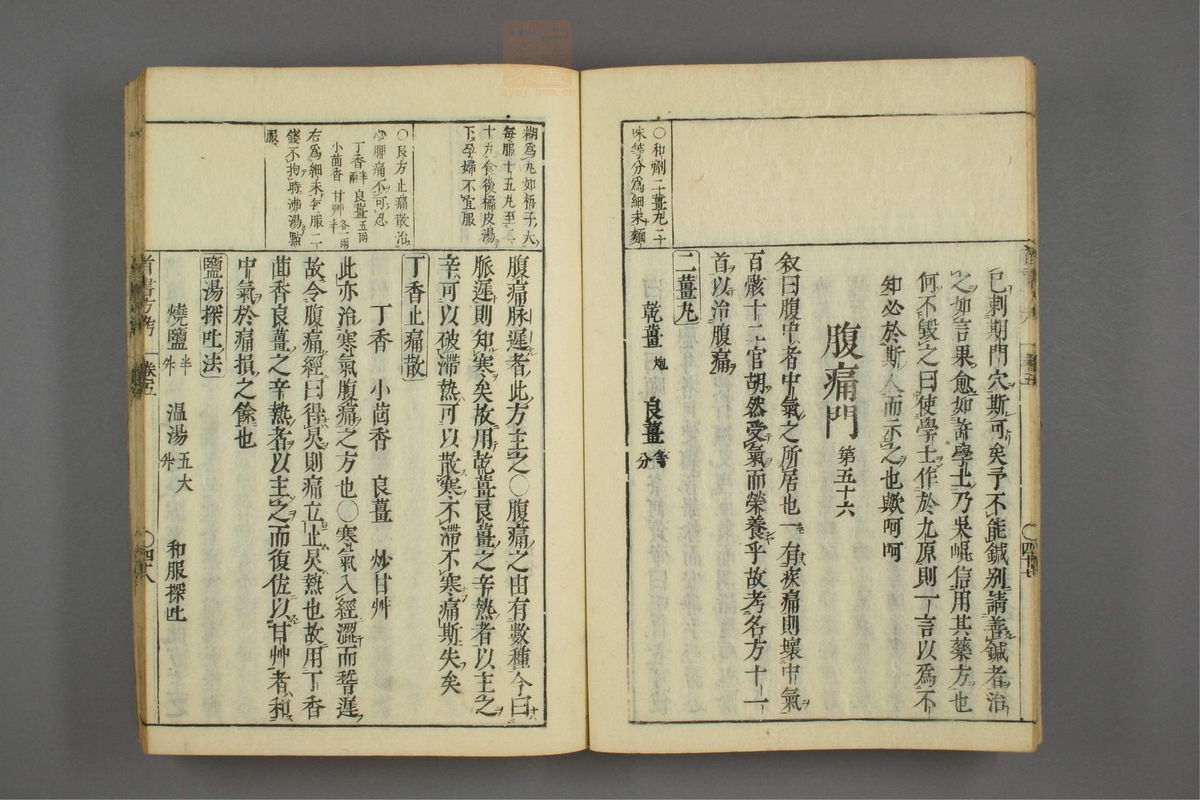 已刺期門穴斯可矣予不能鍼別請善鍼者治
之如言果愈如許學士乃果崐信用其藥方也
何不毀之曰使學士作於九原則一言以爲不
知必於斯人而示之也歟呵呵
腹痛門 第五十六
叙曰腹中者中氣之所居也一有疾痛則壞中氣
百骸十二官胡然受氣而榮養乎故考名方十一
首以治腹痛
二薑丸
乾薑 炮 良薑 等分
〇和劑二薑丸二
味等分爲細末麵
糊爲丸如梧子大
每服十五丸至二
十丸食後橘皮湯
下孕婦不宜服
〇良方止痛散治
心脾痛不可忍
丁香 半兩 良薑 五兩
小茴香 甘艸 各一兩半
右爲細末每服二
錢不拘時沸湯點
服
腹痛脉遲者此方主之〇腹痛之由有數種今曰
脈遲則知寒矣故用乾薑良薑之辛熱者以主之
辛可以破滯熱可以散寒不滯不寒痛斯失矣
丁香止痛散
丁香 小茴香 良薑 炒甘艸
此亦治寒氣腹痛之方也〇寒氣入經澀而稽遲
故令腹痛經曰得炅則痛立止炅熱也故用丁香
茴香良薑之辛熱者以主之而復佐以甘艸者和
中氣於痛損之餘也
鹽湯探吐法
燒鹽 半升 温湯 五大升 和服探吐
卷五
〇四十八
卷五
〇四十七